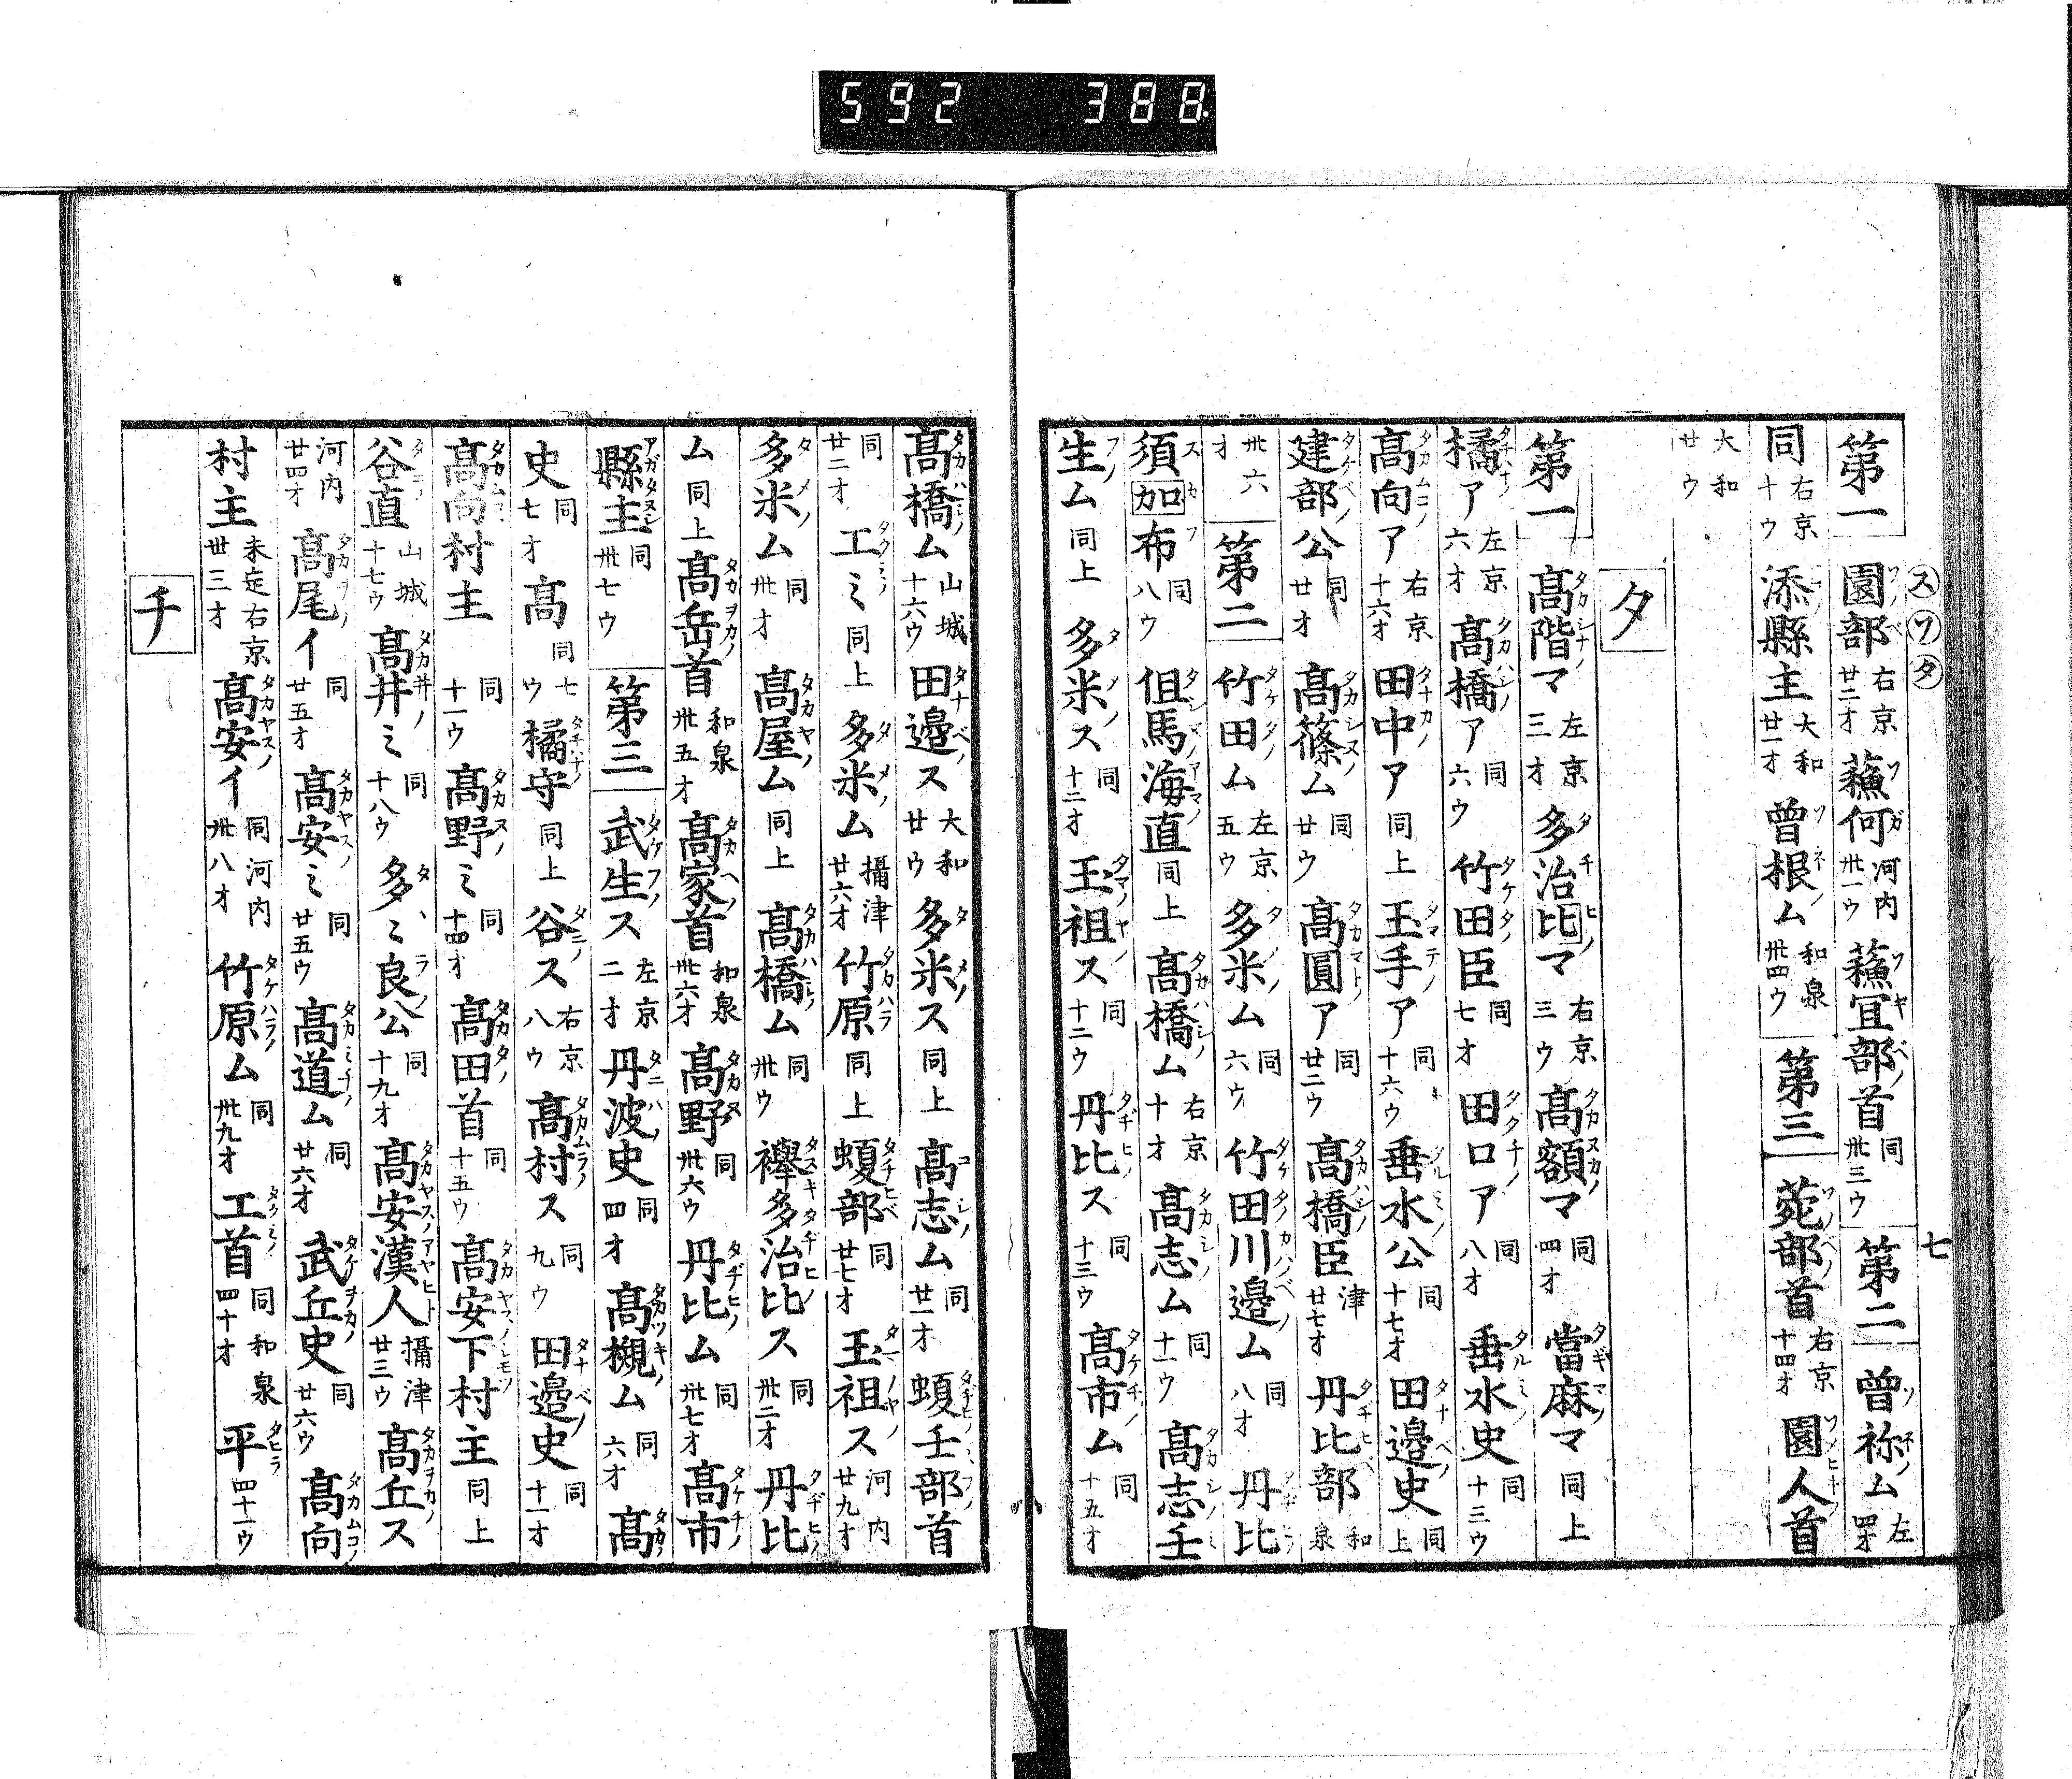 592 388
スソタ 七
第一 園部 右京廿二オ 蘓何 河内卅一ウ 蘓冝部首 同卅三ウ 第二 曽祢ム 左四オ
同 右京十ウ 添縣主 大和廿一オ 曽根ム 和泉卅四ウ 第三 菀部首 右京十四オ 園人首
大和廿ウ
タ
第一 髙階マ 左京三オ 多治比マ 右京三ウ 髙額マ 同四オ 當麻マ 同上
橘ア 左京六オ 髙橋ア 同六ウ 竹田臣 同七オ 田口ア 同八オ 垂水史 同十三ウ
髙向ア 右京十六オ 田中ア 同上 玉手ア 同十六ウ 垂水公 同十七オ 田邉史 同上
建部公 同廿オ 髙篠ム 同廿ウ 髙圓ア 同廿二ウ 髙橋臣 津廿七オ 丹比部 和泉
卅六オ 第二 竹田ム 左京五ウ 多米ム 同六ウ 竹田川邉ム 同八オ 丹比
須加布 同八ウ 但馬海直 同上 髙橋ム 右京十オ 髙志ム 同十一ウ 髙志壬
生ム 同上 多米ス 同十二オ 玉祖ス 同十二ウ 丹比ス 同十三ウ 髙市ム 同十五オ
髙橋ム 山城十六ウ 田邉ス 大和廿ウ 多米ス 同上 髙志ム 同廿一オ 蝮壬部首
同廿二オ 工ミ 同上 多米ム 攝津廿六オ 竹原 同上 蝮部 同廿七オ 玉祖ス 河内廿九オ
多米ム 同卅オ 髙屋ム 同上 髙橋ム 同卅ウ 襷多治比ス 同卅二オ 丹比
ム 同上 髙岳首 和泉卅五オ 髙家首 和泉卅六オ 髙野 同卅六ウ 丹比ム 同卅七オ 髙市
縣主 同卅七ウ 第三 武生ス 左京二オ 丹波史 同四オ 髙槻ム 同六オ 髙
史 同七オ 髙 同七ウ 橘守 同上 谷ス 右京八ウ 髙村ス 同九ウ 田邉史 同十一オ
髙向村主 同十一ウ 髙野ミ 同十四オ 髙田首 同十五ウ 髙安下村主 同上
谷直 山城十七ウ 髙井ミ 同十八ウ 多ミ良公 同十九オ 髙安漢人 攝津廿三ウ 髙丘ス
河内廿四オ 髙尾イ 同廿五オ 髙安ミ 同廿五ウ 髙道ム 同廿六オ 武丘史 同廿六ウ 髙向
村主 未㝎右京卅三オ 髙安イ 同河内卅八オ 竹原ム 同卅九オ 工首 同和泉四十オ 平 四十一ウ
チ